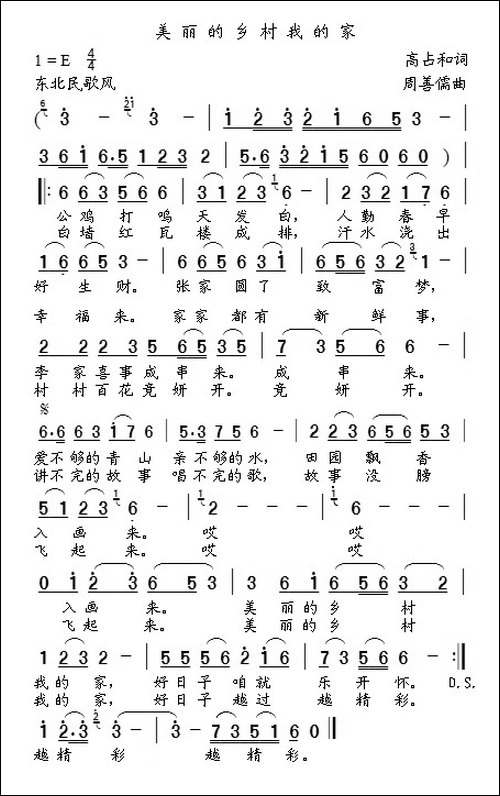 美丽的乡村我的家
1=E 4/4
高占和词
东北民歌风
周善儒曲
( 3 - 3 - | 1 2 3 2 1 6 5 3 |
3 6 1 6·5 1 2 3 2 | 5·6 3 2 1 5 6 0 6 0 )
|: 6 6 3 5 6 6 | 3 1 2 3 6 - | 2 3 2 1 7 6 |
公鸡打鸣天发白，人勤春早
白墙红瓦楼成排，汗水浇出
1 6 6 5 3 - | 6 6 5 6 3 1 | 6 5 6 3 2 1 - |
好生财。张家圆了致富梦，
幸福来。家家都有新鲜事，
2 2 2 3 5 5 5 3 5 | 7 3 5 6 |
李家喜事成串来。成串来。
村村百花竞妍开。竞妍开。
6·6 6 3 1 7 6 | 5·3 7 5 6 - | 2 2 3 6 5 6 5 3 |
爱不够的青山亲不够的水，田园飘香
讲不完的故事唱不完的歌，故事没膀
5 1 2 3 6 - | 2 - - - | 6 - - - |
入画来。哎哎
飞起来。哎哎
0 1 2 3 6 5 3 | 3 6 1 6 5 6 3 2 |
入画来。美丽的乡村
飞起来。美丽的乡村
1 2 3 2 - | 5 5 5 6 2 1 6 | 7 3 5 6 6 - :|
我的家，好日子咱就乐开怀。D.S.
我的家，好日子越过越精彩。
1 2·3 3 - | 3 - 7 3 5 1 6 0 ||
越精彩越精彩。